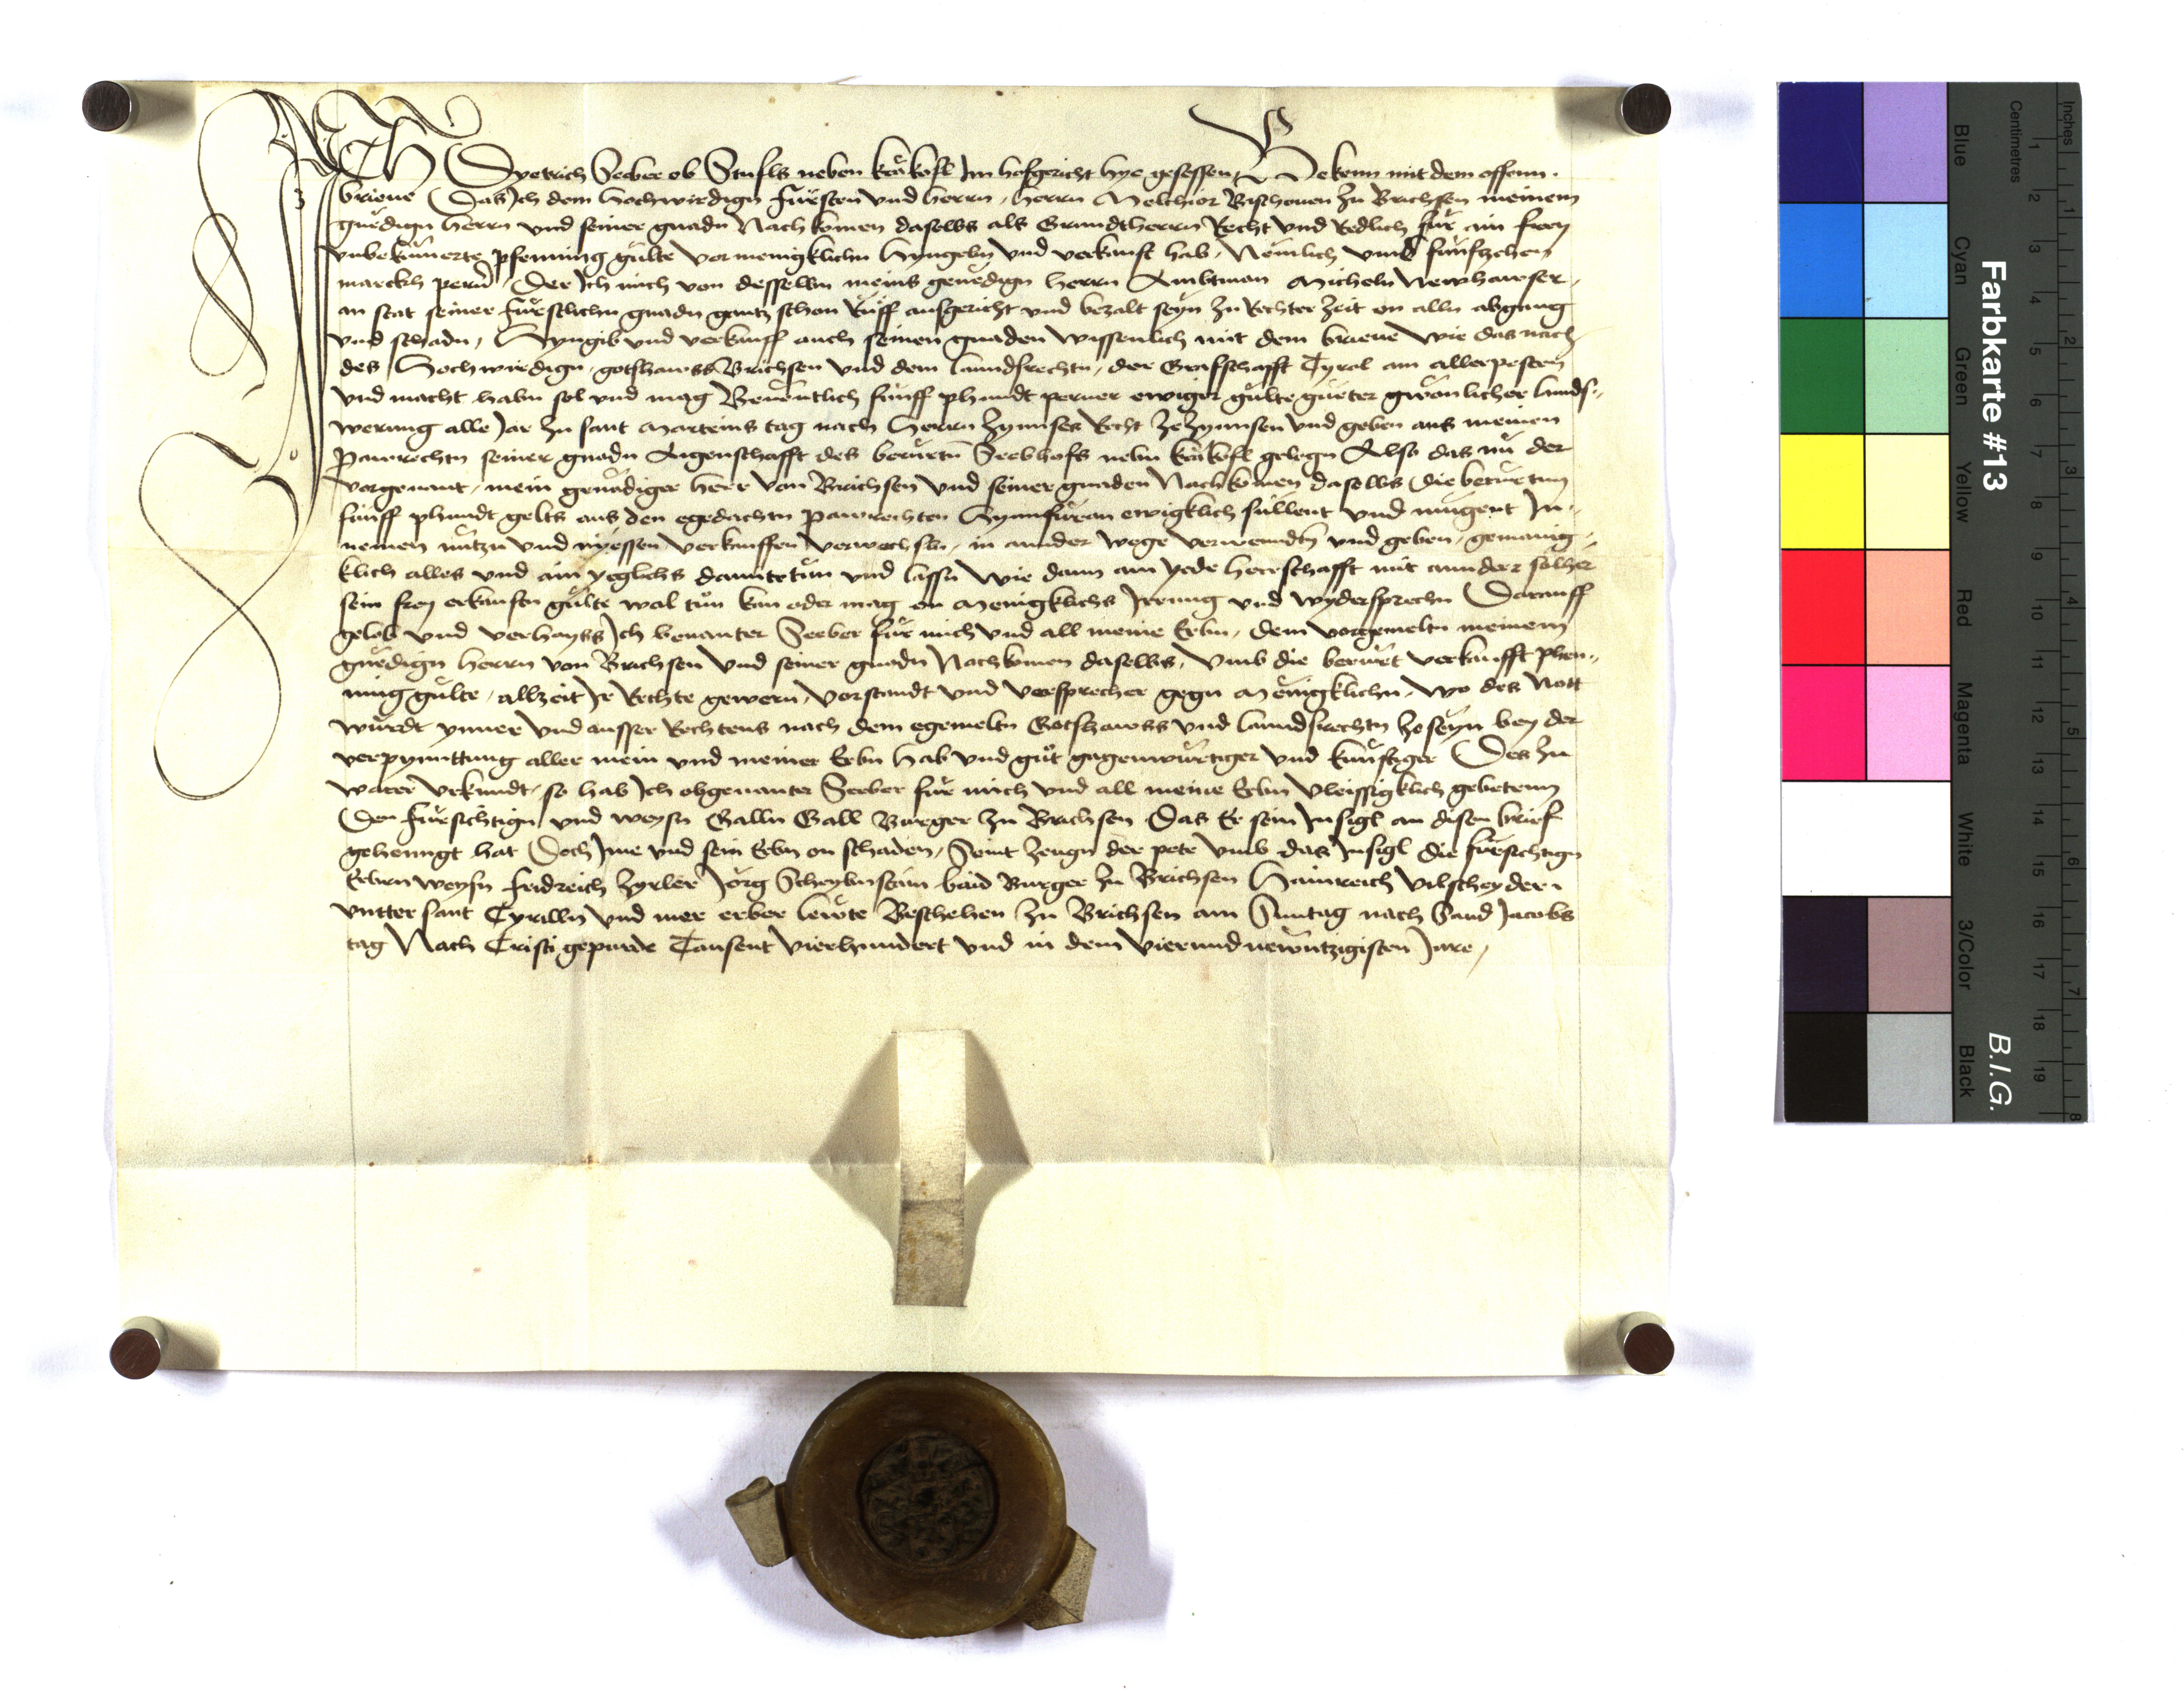 Ich Dyetrich Seeber ob Stufls neben kräkofl Im hofgericht hye gesessen Bekenn mit dem offenn
brieue Das Ich dem Hochwirdign Fürsten vnd herrn, herrn Melchior Bischouen zu Brichsen meinem
gnedign herrn vnd seiner gnadn Nachkomen daselbs als Grundtherrn Recht vnd Redlich für ain frey
vnbekumerte pfenning gülte vor menigklichn hyngebn vnd verkauft hab, Nemlich vmb funfzehen
marckh perner Der Ich mich von desselbn meins genedign herrn Ambtman Micheln Newhawser,
an stat seiner Fürstlichn gnadn gantz schon Rüff ausgericht vnd bezalt seyn zu Rechter zeit on alln abgang
vnd schadn, Hyngib vnd verkauff auch seinen gnaden wissenlich mit dem brieue wie das nach
des Hochwirdign, gotshauss Brichsen vnd dem lanndsrechtn, der Grafschafft Tyral am allerpesten
vnd macht habn sol vnd mag Benentlich funff phundt perner ewiger gülte gueter gwonlicher lands,
werung alle Jar zu sant Marteins tag nach Herrn zynnses Recht ze zynnsen vnd geben aus meinen
Pawrechtn seiner gnadn Aigenschafft des berürtn Seebhofs nebn kräkofl gelegn Also das nu der
vorgenant, mein genädiger herr von Brichsen vnd seiner gnaden Nachkomen daselbs die berürtnn
funff phundt gelts aus den egedachtn pawrechten Hynnfüran ewigklich süllent vnd mügent In,
nemen nützn vnd nyessen verkauffen verwechsln, in annder wege verwenndtn vnd geben, gemainig,
klich alles vnd ain yeglichs damite tun vnd lassn wie dann ain yede herrschafft mit annderr solher
sein frey erkauftn gülte wol tun kan oder mag on Menigklichs Irrung vnd wydersprechn Darauff
gelob vnd verhayss Ich benanter Seeber für mich vnd all meine Erbn, dem vorgemeltn meinem
gnedign herrn von Brichsen vnd seiner gnadn Nachkomen daselbs, vmb die berürt verkaufft phen,,
ning gülte, allzeit Ir Rechte gewern, vorstandt vnd versprecher gegn Menigklichn, wo des Nott
würdt ynner vnd ausser Rechtens nach dem egemeltn Gotshawss vnd lanndsrechtn ze seyn bey der
verpynnttung aller mein vnd meiner Erbn hab vnd güt gagenwürtiger vnd künftiger Des zu
warer vrkundt, so hab Ich obgenanter Seeber für mich vnd all meine Erbn vleissigklich gebetenn
Den Fürsichtign vnd weysn Galln Gall Burger zu Brichsen Das Er sein Insigl an disen brief
gehenngt hat Doch Ime vnd sein Erbn on schaden, Seint zeugn der pete vmb das Insigl die fürsichtign
Erbern weysn Fridreich zyrler Jörg Scheybnstain baid Burger zu Brichsen Hainreich vilscheyder
vntter sant Cyrilln vnd mer erber lewte Beschehen zu Brichsen am Suntag nach Sand Jacobs
tag Nach Cristi gepurde Tausent vierhundert vnd in dem vierundnewntzigisten Jare,
Farbkarte #13
B.I.G.
Inches
Centimetres
Blue
Cyan
Green
Yellow
Red
Magenta
White
3/Color
Black
1 2 3 4 5 6 7 8 9 10 11 12 13 14 15 16 17 18 19
1 2 3 4 5 6 7 8